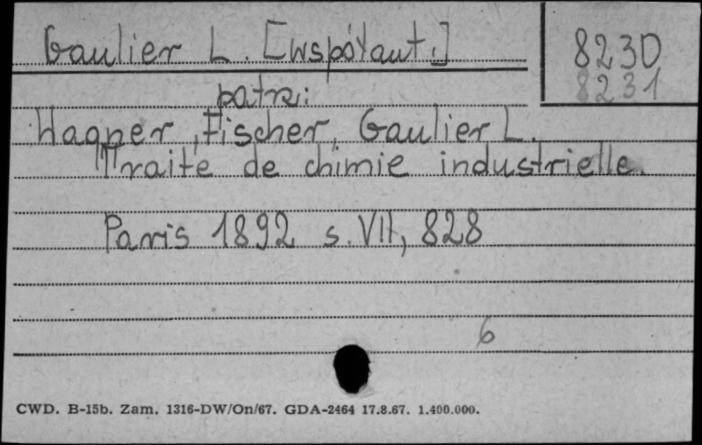 Gaulier L. [współaut.]
8230
8231
patrz:
Wagner, Fischer, Gaulier L.
Traité de chimie industrielle.
Paris 1892 s. VII, 828
6
CWD. B-15b. Zam. 1316-DW/On/67. GDA-2464 17.8.67. 1.400.000.